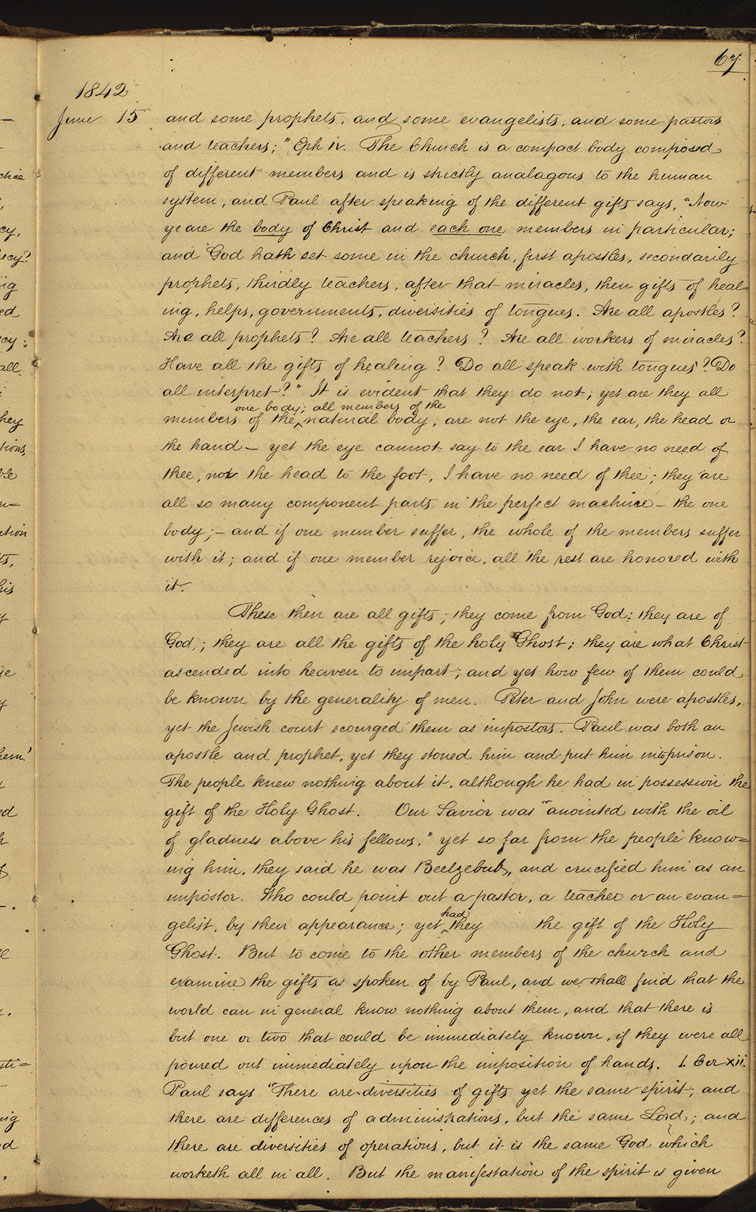 67
1842
June 15 and some prophets, and some evangelists, and some pastors
and teachers;" Eph iv. The Church is a compact body composed
of different members and is strictly analagous to the human
system, and Paul after speaking of the different gifts says, "Now
ye are the body of Christ and each one members in particular;
and God hath set some in the church, first apostles, secondarily
prophets, thirdly teachers, after that miracles, then gifts of heal-
ing, helps, governments, diversities of tongues. Are all apostles?
Are all prophets? Are all teachers? Are all workers of miracles?
Have all the gifts of healing? Do all speak with tongues? Do
all interpret?" It is evident that they do not; yet are they all
one body; all members of the
members of the natural body, are not the eye, the ear, the head or
the hand – yet the eye cannot say to the ear I have no need of
thee, nor the head to the foot, I have no need of thee; they are
all so many component parts in the perfect machine – the one
body; – and if one member suffer, the whole of the members suffer
with it; and if one member rejoice, all the rest are honored with
it.
These then are all gifts; they come from God; they are of
God; they are all the gifts of the holy Ghost; they are what Christ
ascended into heaven to impart; and yet how few of them could
be known by the generality of men. Peter and John were apostles,
yet the Jewish court scourged them as impostors. Paul was both an
apostle and prophet, yet they stoned him and put him in prison.
The people knew nothing about it, although he had in possession the
gift of the Holy Ghost. Our Savior was "anointed with the oil
of gladness above his fellows," yet so far from the people know-
ing him, they said he was Beelzebub, and crucified him as an
impostor. Who could point out a pastor, a teacher or an evan-
gelist, by their appearance; yet had they the gift of the Holy
Ghost. But to come to the other members of the church and
examine the gifts as spoken of by Paul, and we shall find that the
world can in general know nothing about them, and that there is
but one or two that could be immediately known, if they were all
poured out immediately upon the imposition of hands. 1. Cor xii.
Paul says "There are diversities of gifts yet the same spirit; and
there are differences of administrations, but the same Lord; and
there are diversities of operations, but it is the same God which
worketh all in all. But the manifestation of the spirit is given